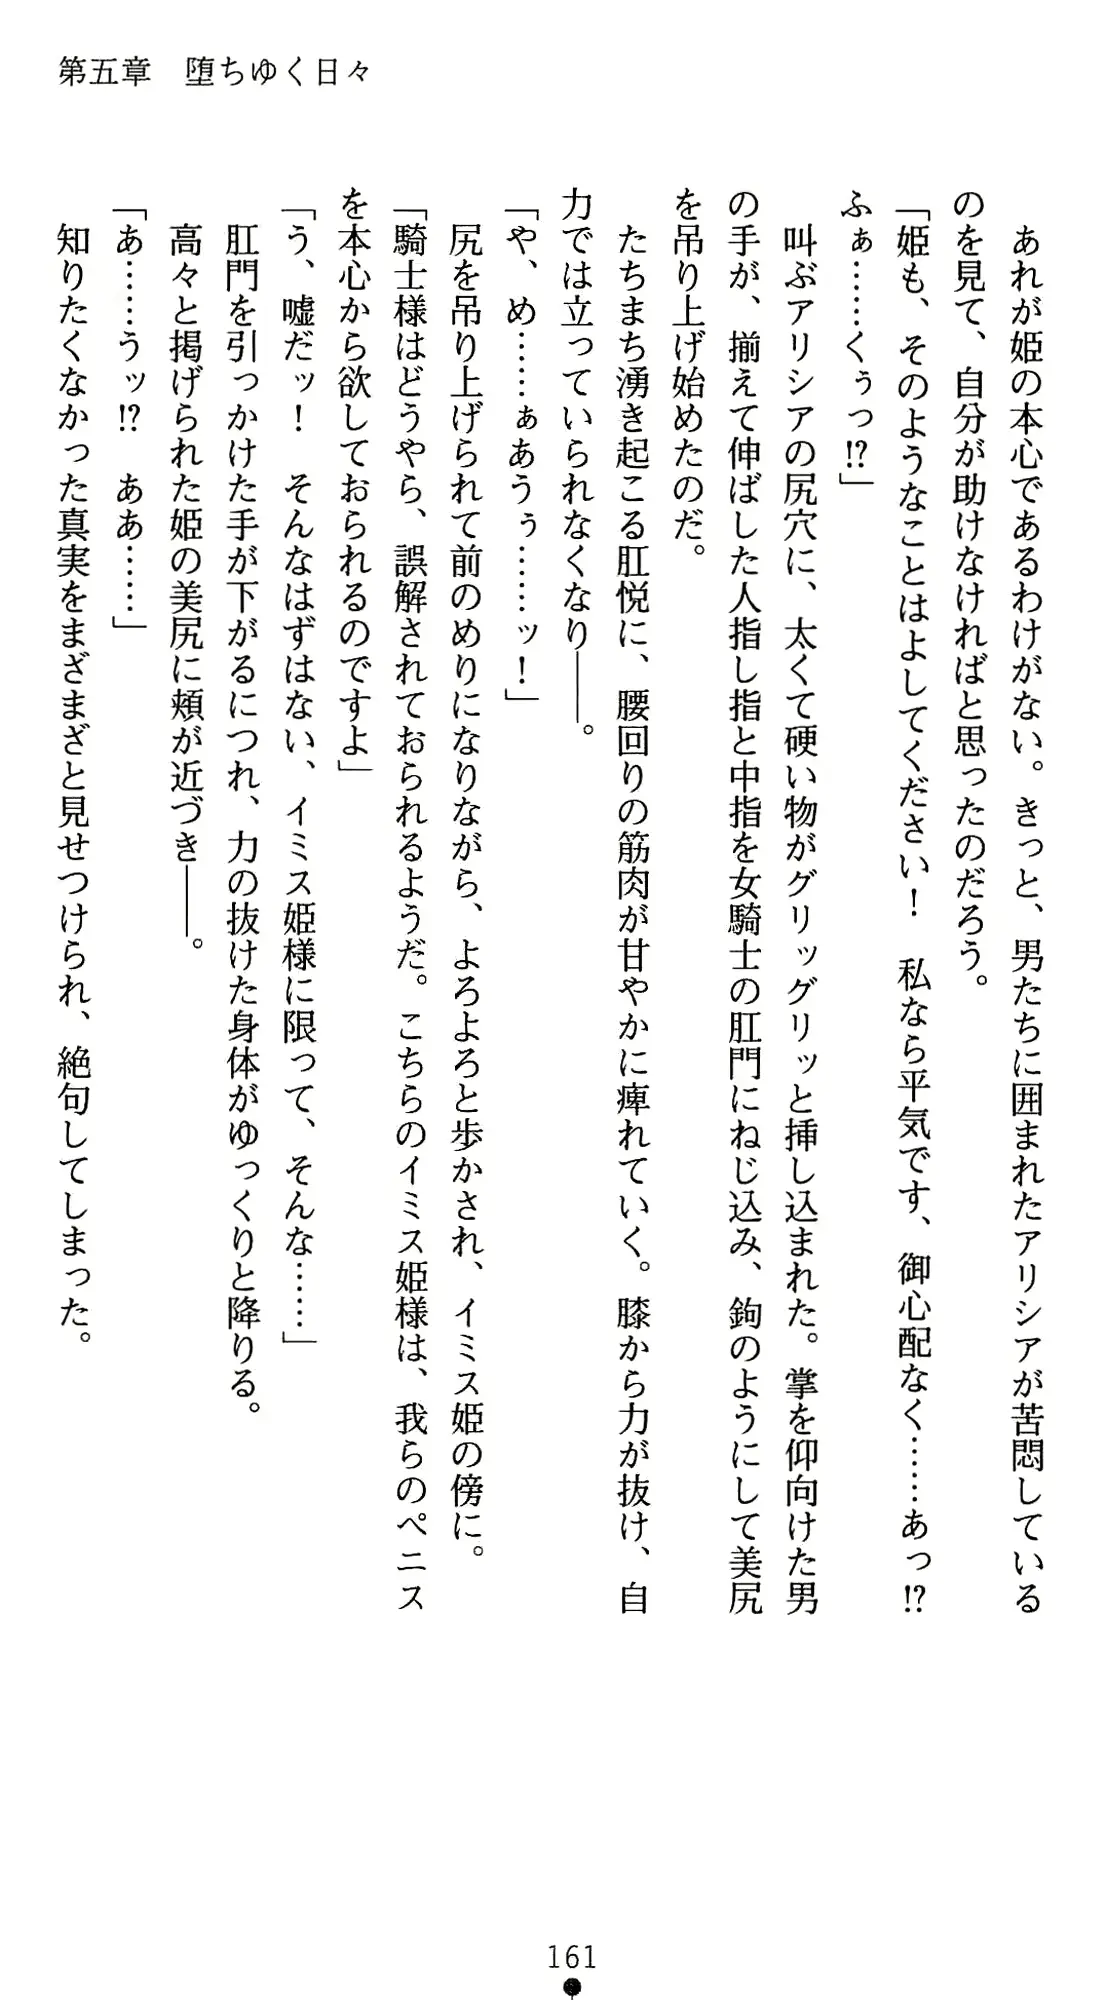 第五章　堕ちゆく日々
あれが姫の本心であるわけがない。きっと、男たちに囲まれたアリシアが苦悶している
のを見て、自分が助けなければと思ったのだろう。
「姫も、そのようなことはよしてください！　私なら平気です、御心配なく……あっ!?
ふぁ……くぅっ!?」
叫ぶアリシアの尻穴に、太くて硬い物がグリッグリッと挿し込まれた。掌を仰向けた男
の手が、揃えて伸ばした人指し指と中指を女騎士の肛門にねじ込み、鉤のようにして美尻
を吊り上げ始めたのだ。
たちまち湧き起こる肛悦に、腰回りの筋肉が甘やかに痺れていく。膝から力が抜け、自
力では立っていられなくなり――。
「や、め……ぁあうぅ……ッ！」
尻を吊り上げられて前のめりになりながら、よろよろと歩かされ、イミス姫の傍に。
「騎士様はどうやら、誤解されておられるようだ。こちらのイミス姫様は、我らのペニス
を本心から欲しておられるのですよ」
「う、嘘だッ！　そんなはずはない、イミス姫様に限って、そんな……」
肛門を引っかけた手が下がるにつれ、力の抜けた身体がゆっくりと降りる。
高々と掲げられた姫の美尻に頬が近づき――。
「あ……うッ!?　ああ……」
知りたくなかった真実をまざまざと見せつけられ、絶句してしまった。
161